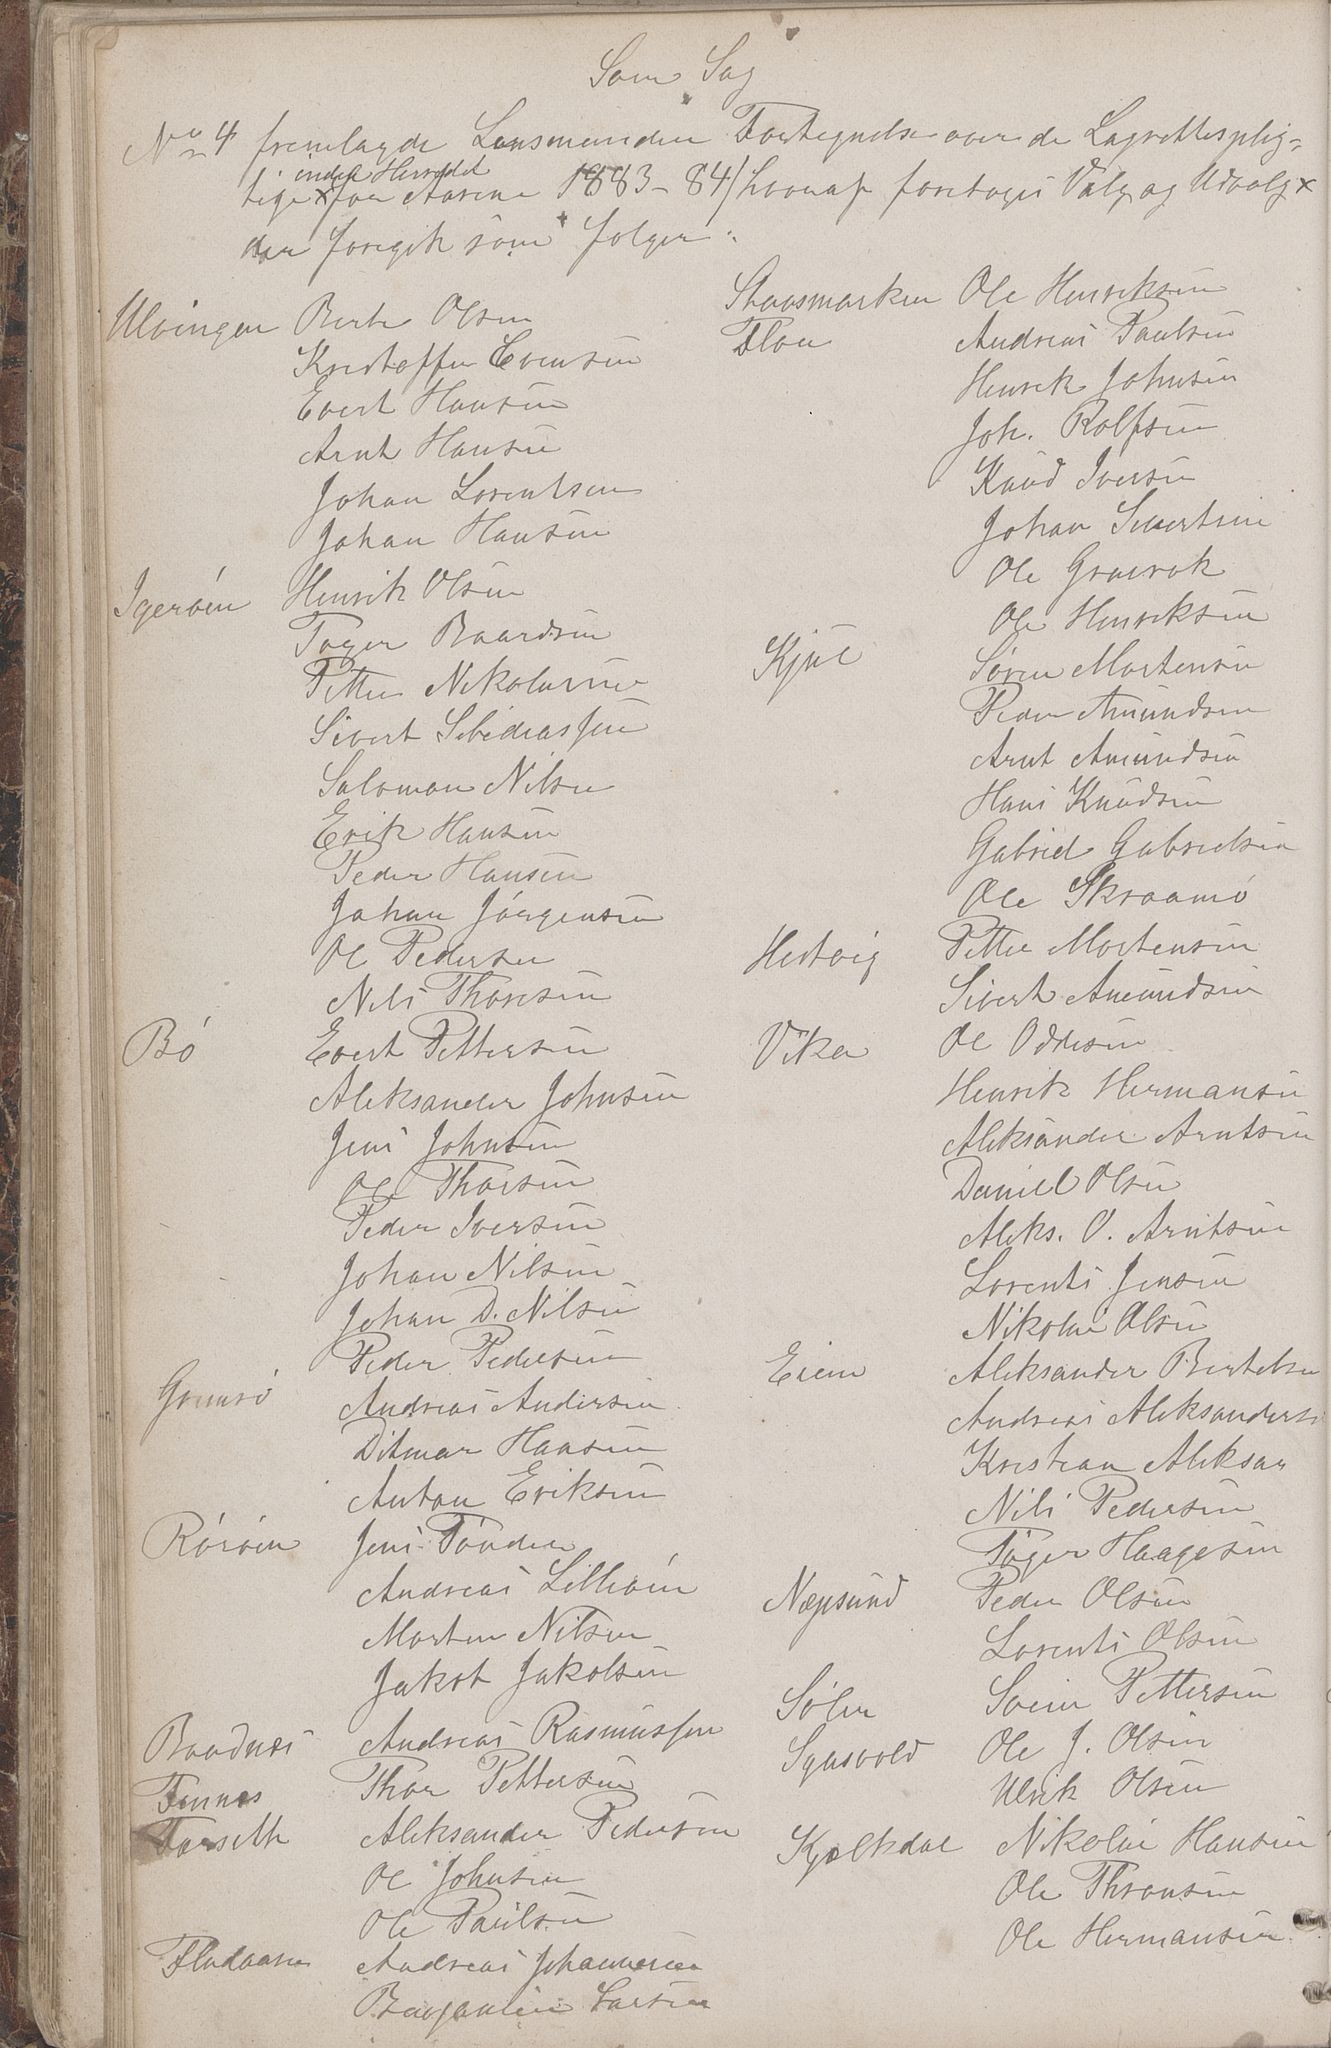 Som Sag
No 4 fremlagde Lensmanden Fortegnelse over de Lagrettesplig=
inden Herredet
tige x for Aarene 1883-84/hvoraf foretoges Valg og Udvalg x
der foregik som følger:
Ulvingen Bert Olsen
Kristoffer Evensen
Evert Hansen
Arnt Hansen
Johan Lorentsen
Johan Hansen
Igerøen Henrik Olsen
Tøger Baardsen
Petter Nikolaisen
Sivert Sebideassen
Salomon Nilsen
Erik Hansen
Peder Hansen
Johan Jørgensen
Ole Pedersen
Nils Thoresen
Bø Evert Pettersen
Aleksander Johnsen
Jens Johnsen
Ole Thorsen
Peder Iversen
Johan Nilsen
Johan D. Nilsen
Peder Pedersen
Grimsø Andreas Andersen
Ditmar Hansen
Anton Eriksen
Rørøen Jens Tønder
Andreas Lilleøen
Morten Nilsen
Jakob Jakobsen
Baadnes Andreas Rasmussen
Finnes Thor Pettersen
Forseth Aleksander Pedersen
Ole Johnsen
Ole Paulsen
Flodaasen Andreas Johannesen
Benjamin Larsen
Stavsmarken Ole Henriksen
Flou Andreas Paulsen
Henrik Johnsen
Joh. Rolfsen
Knud Iversen
Johan Sivertsen
Ole Graevok
Ole Henriksen
Kjul Søren Mortensen
Peder Amundsen
Arnt Amundsen
Hans Knudsen
Gabriel Gabrielsen
Ole Skraamø
Hestvig Petter Mortensen
Sivert Amundsen
Vika Ole Oddesen
Henrik Hermansen
Aleksander Arntsen
Daniel Olsen
Aleks. O. Arntsen
Lorents Jensen
Nikolai Olsen
Eiem Aleksander Bertelsen
Andreas Aleksanders
Kristian Aleksan
Nils Pedersen
Tøger Haagesen
Næpsund Peder Olsen
Lorents Olsen
Søler Svein Pettersen
Synsvold Ole J. Olsen
Ulrik Olsen
Kjelkdal Nikolai Hansen
Ole Thronsen
Ole Hermansen